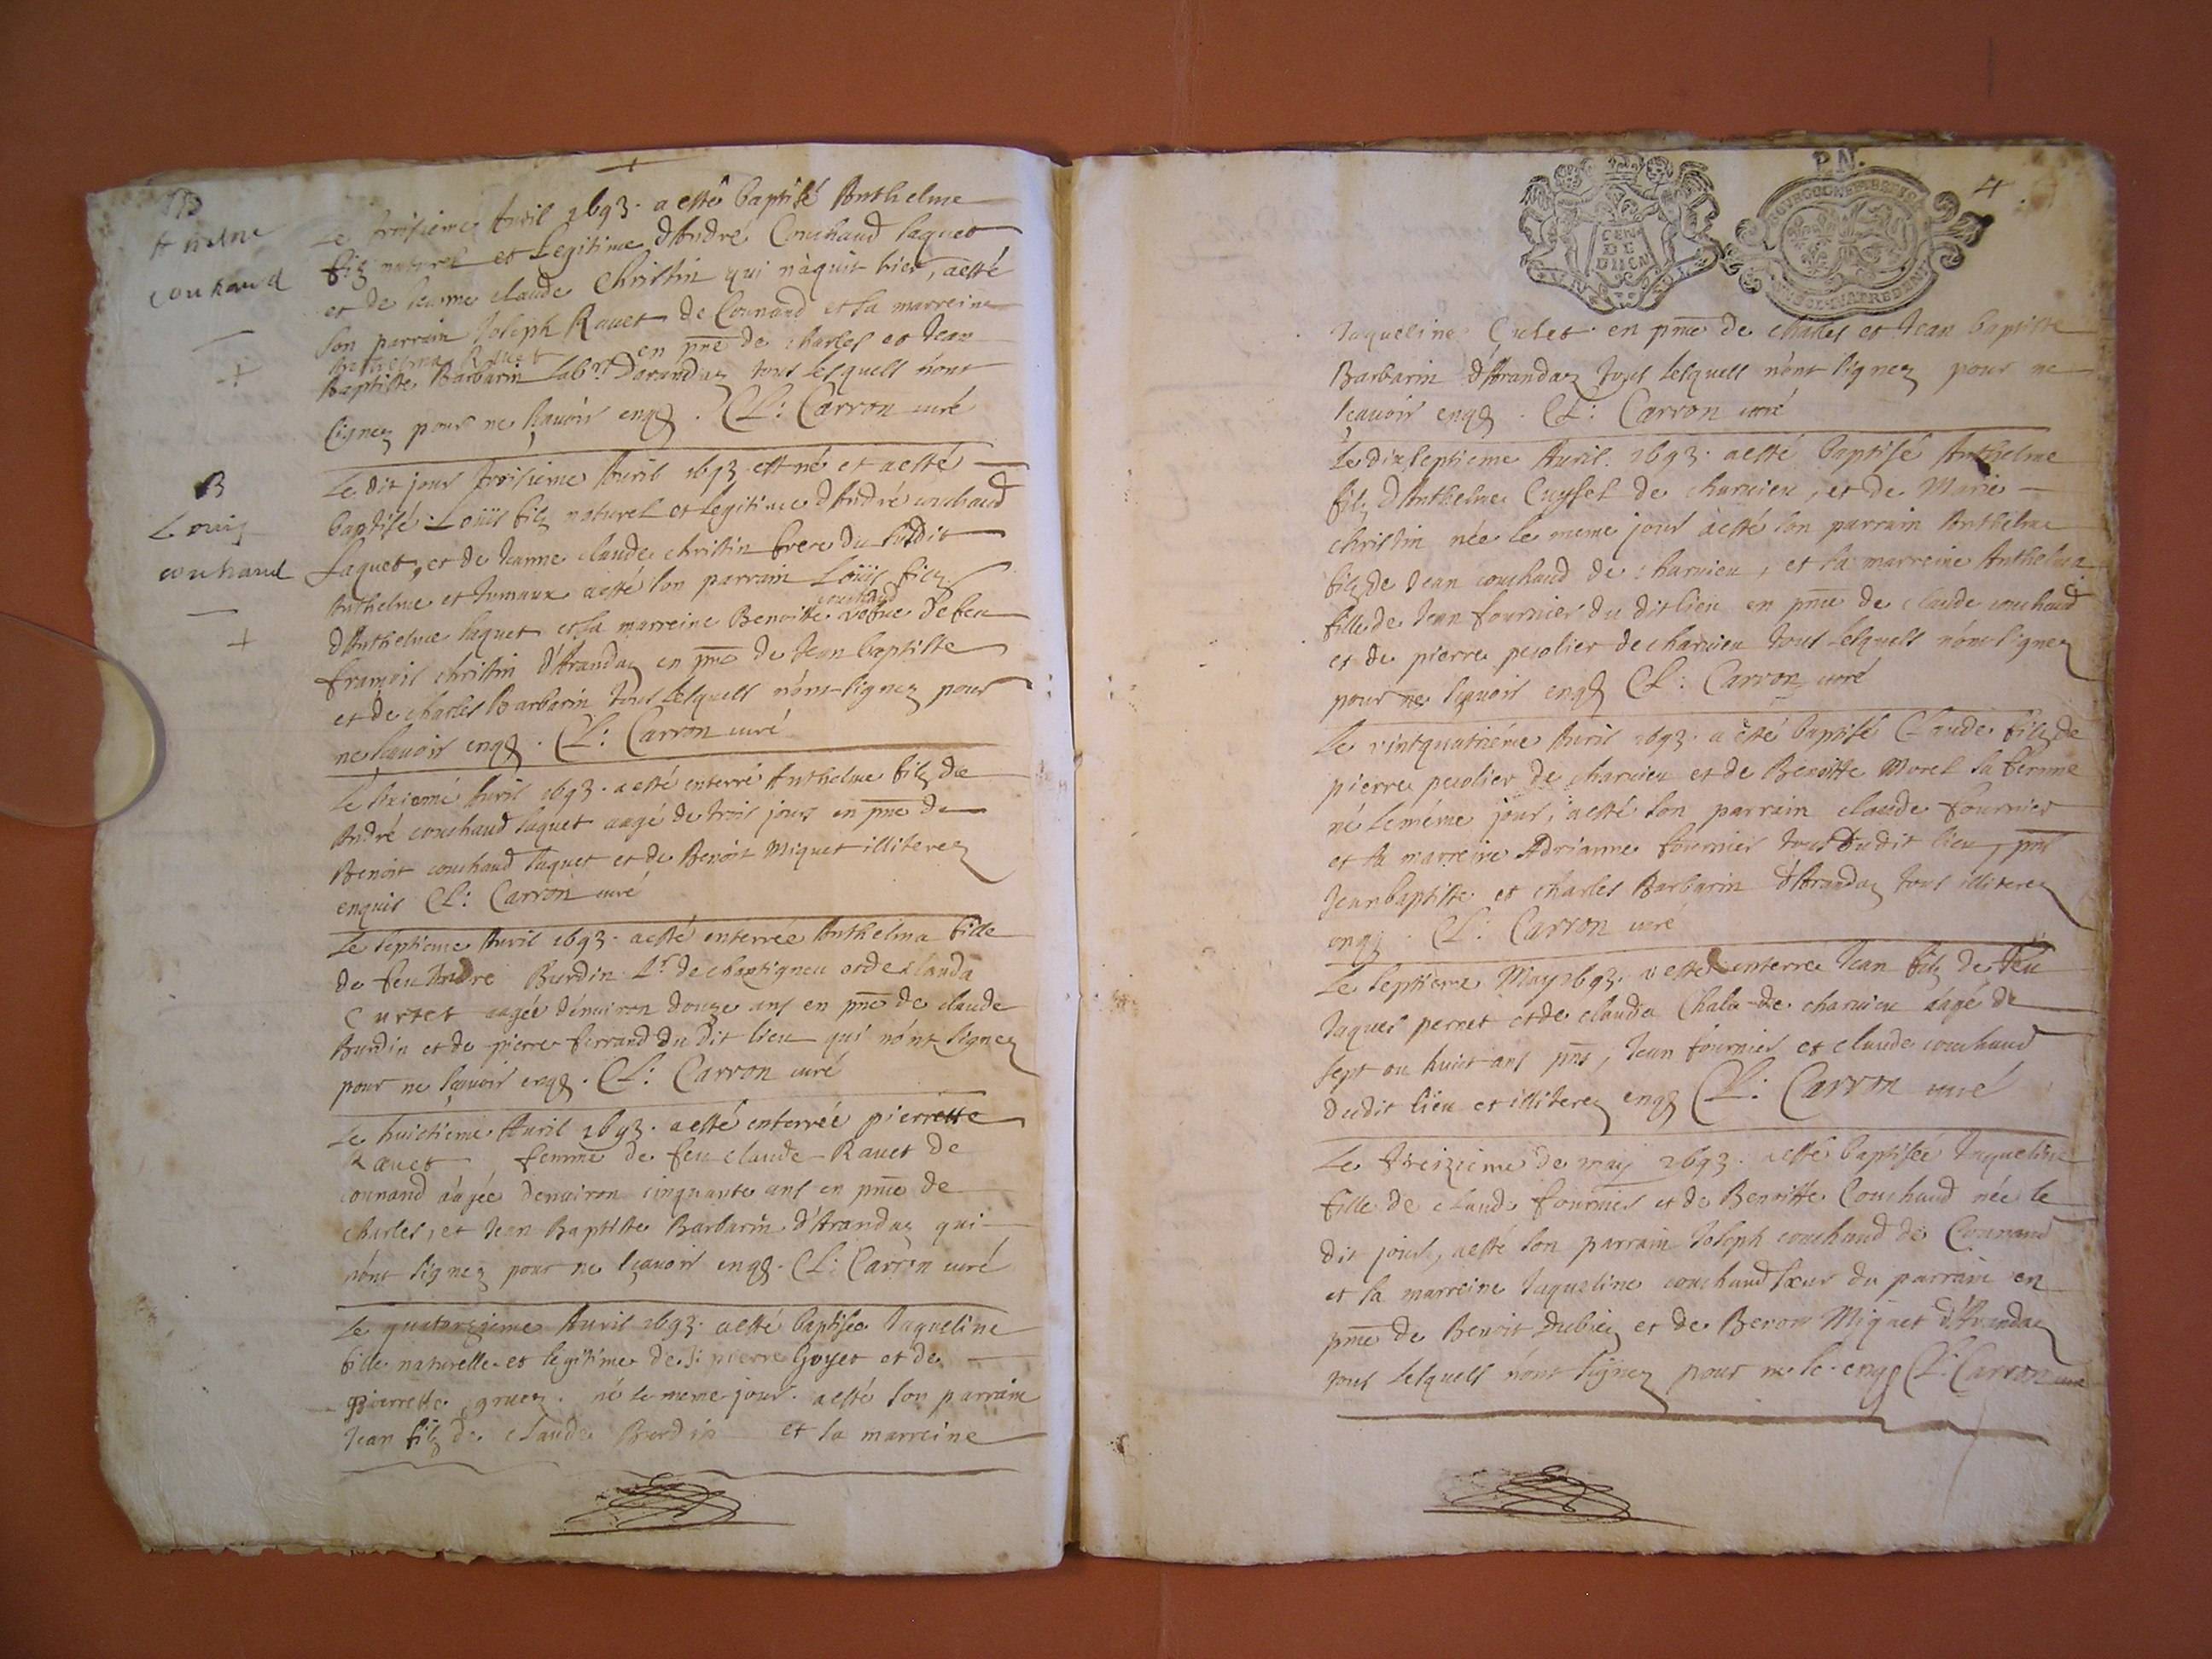 B
Anthelme
couhaud
Le troisieme Avril 1693. a esté baptisé Anthelme
filz naturel et legitime d'André Couhaud Iaquet
et de Ieanne claude Christin qui nâquit hier, a esté
son parrain Ioseph Ravet de Counand et sa marreine
Anthelma Ravet en pnce de charles et Iean
Baptiste Barbarin Labrs Darandaz tous lesquels n'ont
signez pour ne sçavoir enqs. Cl: Carron curé
B
Louis
couhaud
Le dit jour troisieme Avril 1693 est né et a esté
baptisé Loüis filz naturel et legitime d'André couhaud
Iaquet, et de Ieanne claude christin frere du susdit
Anthelme et Iumaux a esté son parrain Loüis filz
d'Anthelme Iaquet et sa marreine Benoitte couhaud vefue de feu
françois christin d'Arandaz en pnce de Iean baptiste
et de charles Barbarin tous lesquels n'ont signez pour
ne sçavoir enqs. Cl: Carron curé
Le sixieme Avril 1693. a esté enterré Anthelme filz de
André couhaud Iaquet aagé de trois jours en pnce de
Benoit couhaud Iaquet et de Benoit Miquet illiterez
enquis Cl: Carron curé
Le septieme Avril 1693. a esté enterrée Anthelma fille
de feu Andre Burdin Lr de chantigneu et de clauda
Curtet aagée d'environ douze ans en pnce de claude
Burdin et de pierre ferrand du dit lieu qui n'ont signez
pour ne sçavoir enqs. Cl: Carron curé
Le huictieme Avril 1693. a esté enterrée pierrette
Ravet femme de feu claude Ravet de
counand aagée denviron cinquante ans en pnce de
charles, et Iean Baptiste Barbarin d'Arandaz qui
n'ont signez pour ne sçavoir enqs. Cl: Carron curé
Le quatorzieme Avril 1693. a esté baptisée Iaqueline
fille naturelle et legitime de pierre Goyet et de
Pierrette gruez né le meme jour. a esté son parrain
Iean filz de claude Burdin et la marreine
4
P.N.
GEN
DE
DIION
Iaqueline Culet en pnce de charles et Iean baptiste
Barbarin d'Arandaz tous lesquels n'ont signez pour ne
sçavoir enqs. Cl: Carron curé
Le dixseptieme Avril 1693. a esté baptisé Anthelme
filz d'Anthelme Cuysel de charvieu, et de Marie
christin née le meme jour a esté son parrain Anthelme
filz de Iean couhaud de charvieu, et sa marreine Anthelma
fille de Iean fournier du dit lieu en pnce de claude couhaud
et de pierre pecolier de charvieu tous lesquels n'ont signez
pour ne sçavoir enqs Cl: Carron, curé
Le vintquatriéme Avril 1693. a esté baptisé Claude filz de
pierre pecolier de charvieu et de Benoitte Morel sa femme
né le méme jour, a esté son parrain claude fournier
et sa marreine Adrianne fournier tous dudit lieu, pns
Iean baptiste et charles Barbarin d'Arandaz tous illiterez
enqs. Cl: Carron curé
Le septieme May 1693. a esté enterré Iean filz de feu
Iaques pernet et de clauda Chala de charvieu aagé de
sept ou huict ans pns, Iean fournier et claude couhaud
dudit lieu et illiterez enqs Cl: Carron curé
Le treizieme de may 1693. a esté baptisée Iaqueline
fille de claude fournier et de Benoitte Couhaud née le
dit jour, a esté son parrain Ioseph couhaud de Counand
et sa marreine Iaqueline couhaud sœur du parrain en
pnce de Benoit Dubiez et de Benoit Miquet d'Arandaz
tous lesquels n'ont signez pour ne sc. enqs Cl: Carron curé